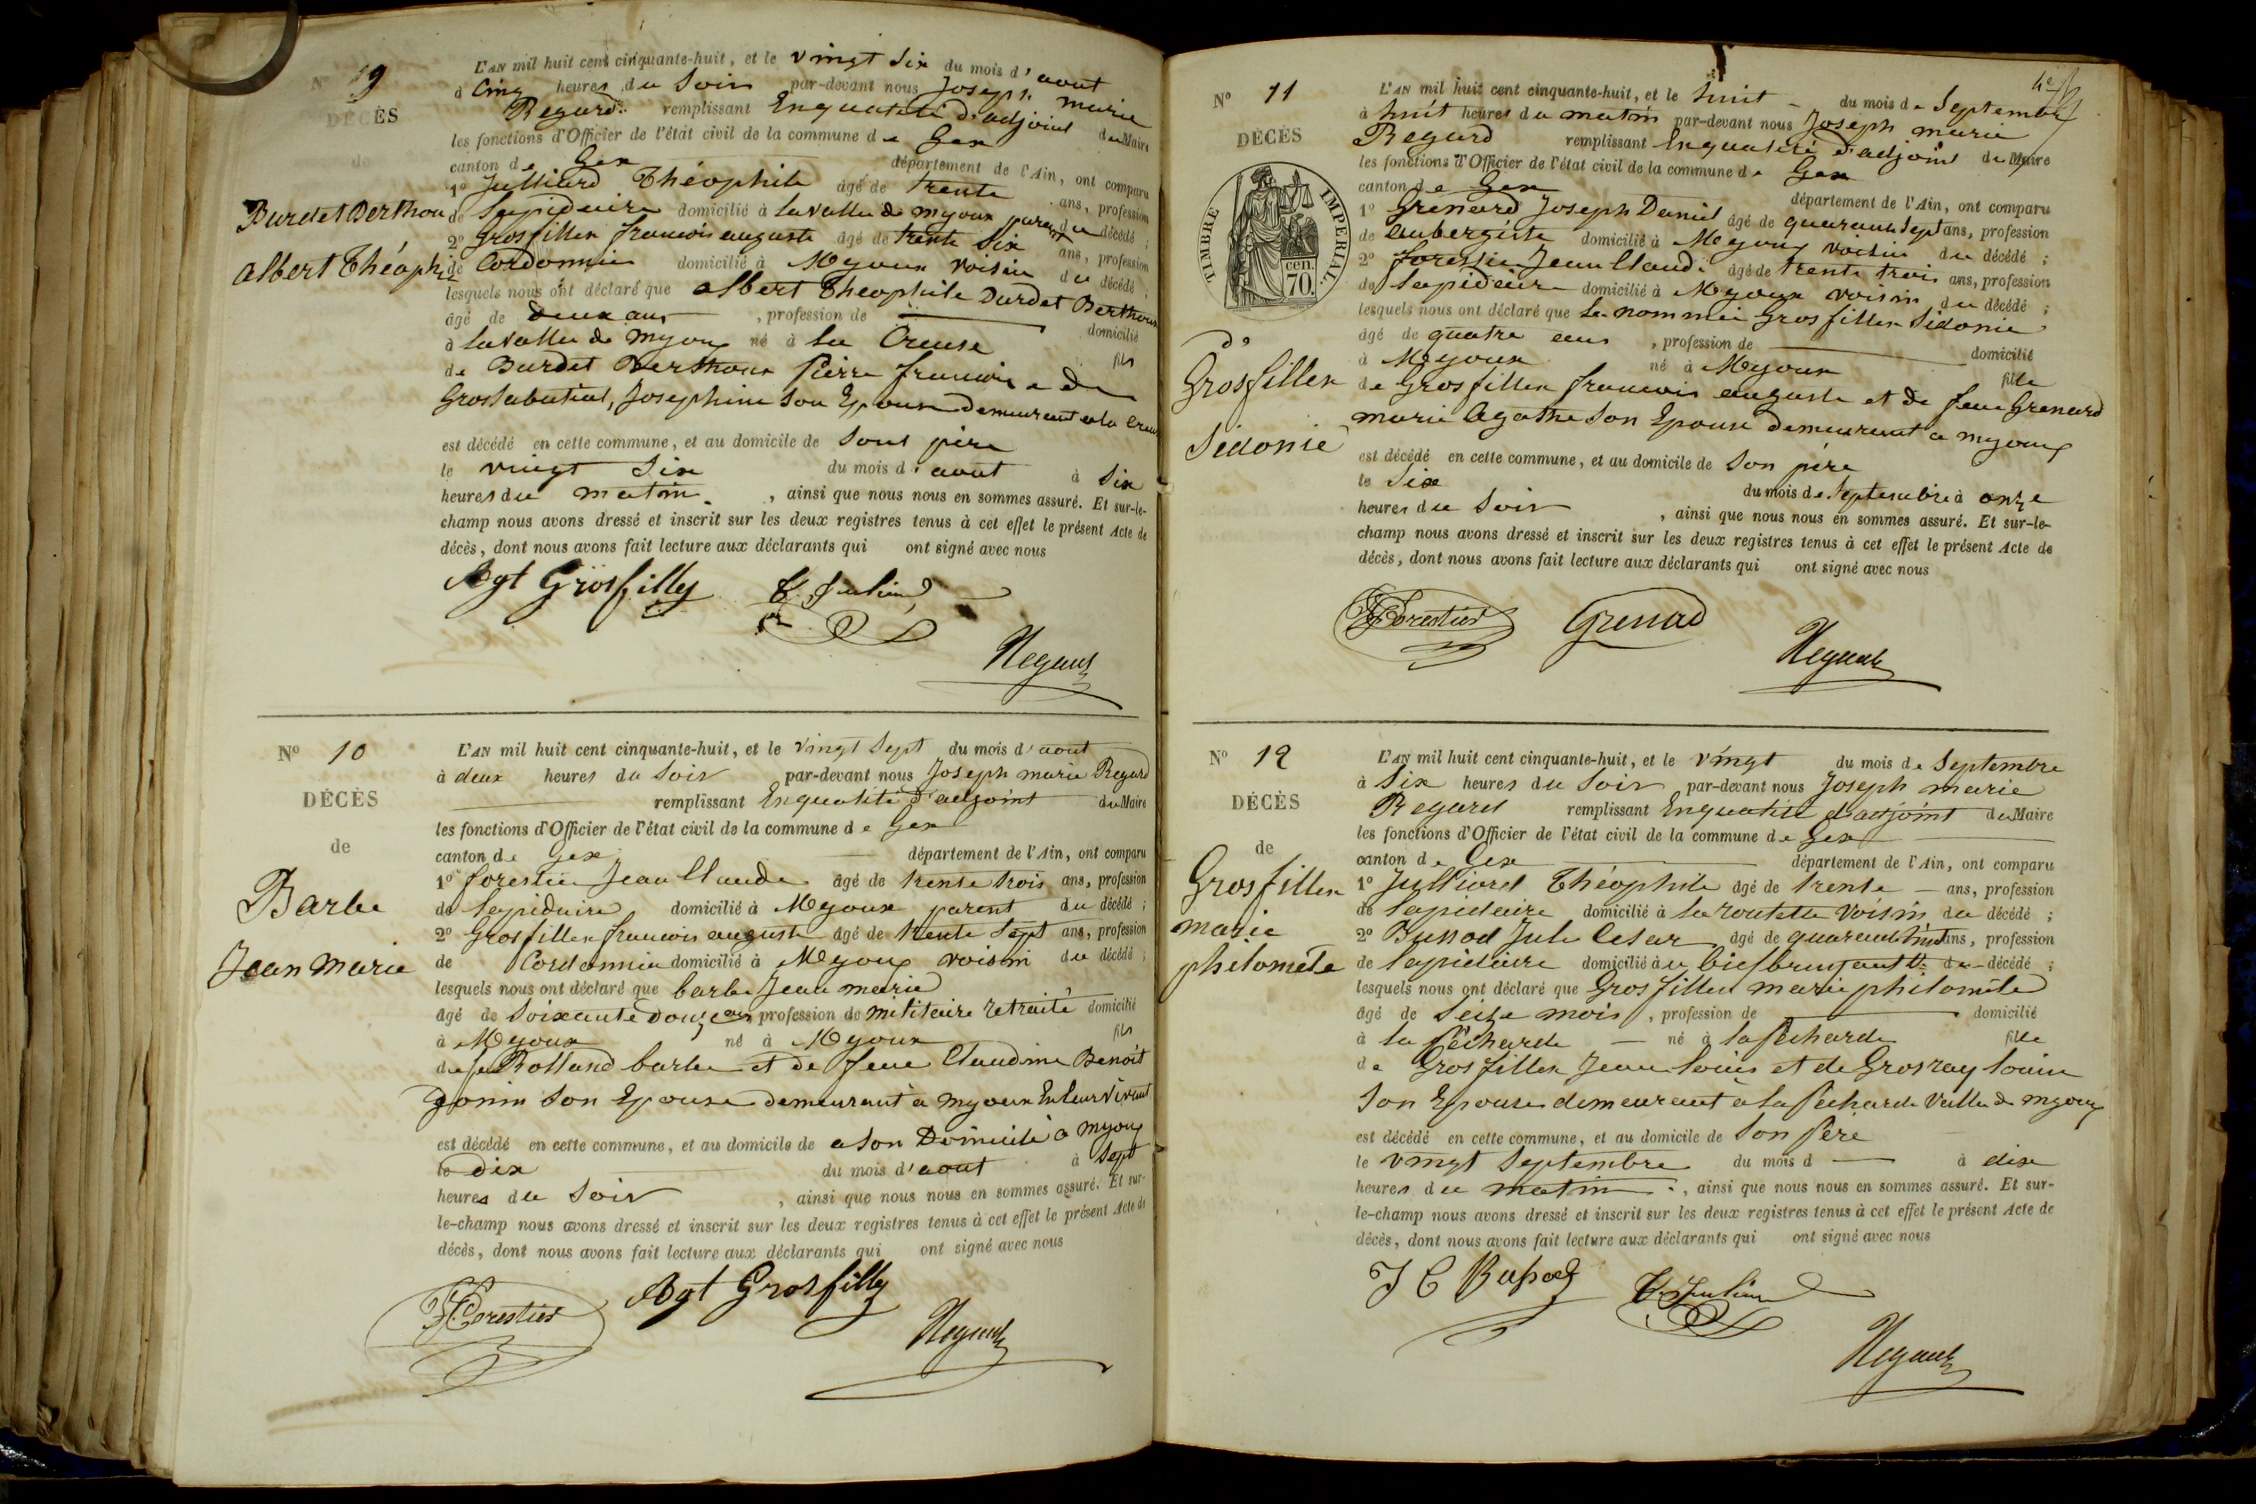 N° 9
DÉCÈS
de
Burdet Berthou
albert Théophi
L'AN mil huit cent cinquante-huit, et le vingt Six du mois d'aout
à Cinq heures du Soir par-devant nous Joseph marie
Regard remplissant Enqualité d'adjoint du Maire
les fonctions d'Officier de l'état civil de la commune de Gex
canton de Gex département de l'Ain, ont comparu
1° Julliard Théophile âgé de trente ans, profession
de lapidaire domicilié à lavallee de myoux parent du décédé ;
2° Grosfillex francois auguste âgé de trente Six ans, profession
de Cordonnier domicilié à Mejoux voisin du décédé ;
lesquels nous ont déclaré que albert Theophile Burdet Berthoux
âgé de deux ans , profession de domicilié
à lavallee de myoux né à la Creuse fils
de Burdet Berthoux Pierre francois e De
Josephine Son Epouse demeurant a la Creuse
est décédé en cette commune, et au domicile de Sont père
le vingt Six du mois d'aout à Six
heures du matin , ainsi que nous nous en sommes assuré. Et sur-le-
champ nous avons dressé et inscrit sur les deux registres tenus à cet effet le présent Acte de
décès, dont nous avons fait lecture aux déclarants qui ont signé avec nous
Agt Grosfilley
Regard
N° 10
DÉCÈS
de
Barbe
Jean Marie
L'AN mil huit cent cinquante-huit, et le vingt Sept du mois d'aout
à deux heures du Soir par-devant nous Joseph marie Regard
remplissant Enqualité d'adjoint du Maire
les fonctions d'Officier de l'état civil de la commune de Gex
canton de Gex département de l'Ain, ont comparu
1° forestier Jean Claude âgé de trente trois ans, profession
de lapidaire domicilié à Mejoux parent du décédé ;
2° Grosfillex francois auguste âgé de trente Sept ans, profession
de Cordonnier domicilié à Mejoux voisin du décédé ;
lesquels nous ont déclaré que barbe Jean marie
âgé de Soixante douze ans profession de militaire retraité domicilié
à Mejoux né à Mejoux fils
de feu Rolland barbe et de feue Claudine Benoit
gonin Son Epouse demeurant à myoux En leur vivant
est décédé en cette commune, et au domicile de a son Domicile à myoux
le dix du mois d'aout à Sept
heures du Soir , ainsi que nous nous en sommes assuré. Et sur-
le-champ nous avons dressé et inscrit sur les deux registres tenus à cet effet le présent Acte de
décès, dont nous avons fait lecture aux déclarants qui ont signé avec nous
JC forestier
Agt Grosfilley
Regard
N° 11
DÉCÈS
TIMBRE IMPÉRIAL.
cen.
70.
De
Grosfillex
Sidonie
L'AN mil huit cent cinquante-huit, et le huit du mois de Septembre
à huit heures du matin par-devant nous Joseph marie
Regard remplissant Enqualité d'adjoint du Maire
les fonctions d'Officier de l'état civil de la commune de Gex
canton de Gex département de l'Ain, ont comparu
1° Grenard Joseph Daniel âgé de quarante Sept ans, profession
de aubergiste domicilié à Mejoux voisin du décédé ;
2° forestier Jean Claude âgé de trente trois ans, profession
de lapidaire domicilié à Mejoux voisin du décédé ;
lesquels nous ont déclaré que la nommée grosfillex Sidonie
âgé de quatre ans , profession de domicilié
à Mejoux né à Mejoux fille
de Grosfillex francois auguste et de feue Grenard
marie Agathe Son Epouse demeurant a myoux
est décédé en cette commune, et au domicile de Son père
le Six du mois de Septembre à onze
heures du Soir , ainsi que nous nous en sommes assuré. Et sur-le-
champ nous avons dressé et inscrit sur les deux registres tenus à cet effet le présent Acte de
décès, dont nous avons fait lecture aux déclarants qui ont signé avec nous
JC forestier
Grenard
Regard
N° 12
DÉCÈS
de
Grosfillex
marie
philomète
L'AN mil huit cent cinquante-huit, et le vingt du mois de Septembre
à Six heures du Soir par-devant nous Joseph marie
Regard remplissant Enqualité d'adjoint du Maire
les fonctions d'Officier de l'état civil de la commune de Gex
canton de Gex département de l'Ain, ont comparu
1° Julliard Théophile âgé de trente ans, profession
de lapidaire domicilié à la routette voisin du décédé ;
2° Bussod Jule Cesar âgé de quarante huit ans, profession
de lapidaire domicilié au du décédé ;
lesquels nous ont déclaré que Grosfillex marie philomète
âgé de Seize mois , profession de domicilié
à la Pécharde né à la Pécharde fille
de Grosfillex Jean louis et de Grosray louise
Son Epouse demeurant à la Pecharde Vallee de myoux
est décédé en cette commune, et au domicile de Son Père
le vingt Septembre du mois d à dix
heures du matin , ainsi que nous nous en sommes assuré. Et sur-
le-champ nous avons dressé et inscrit sur les deux registres tenus à cet effet le présent Acte de
décès, dont nous avons fait lecture aux déclarants qui ont signé avec nous
J C Bussod
Regard